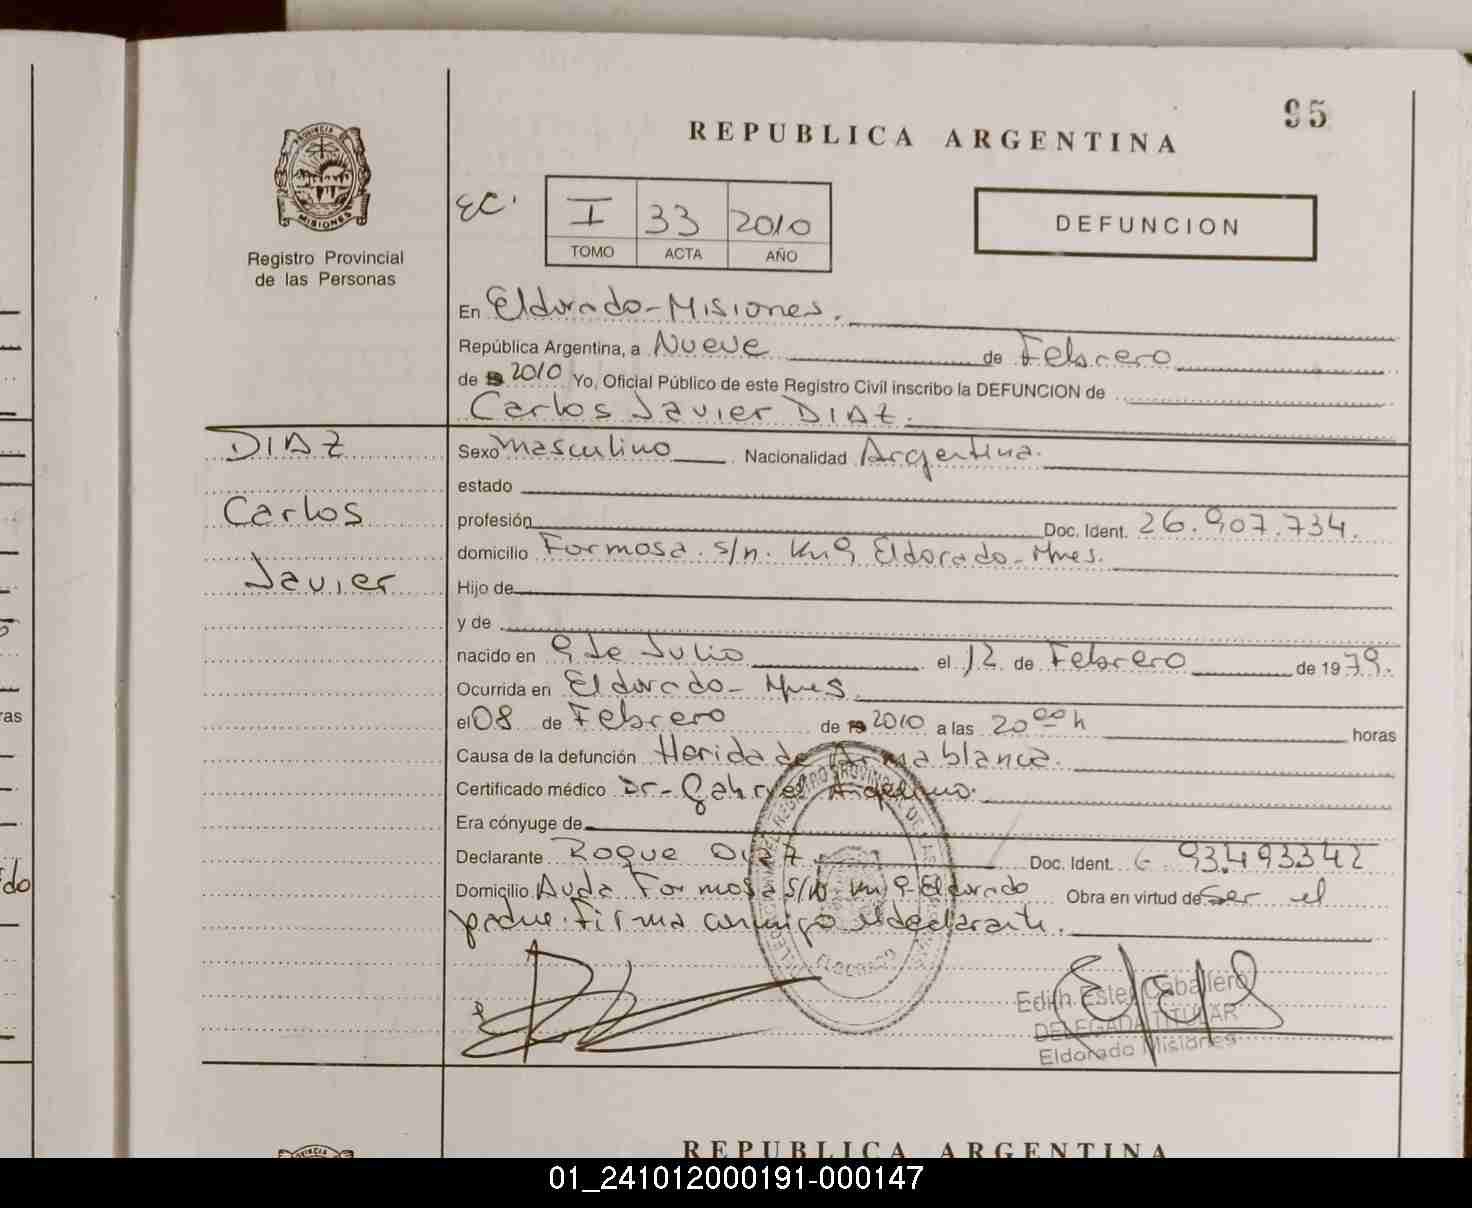 95
REPUBLICA ARGENTINA
PROVINCIA DE
MISIONES
Registro Provincial
de las Personas
EC.
I 33 2010
TOMO ACTA AÑO
DEFUNCION
En Eldorado-Misiones.
República Argentina, a Nueve de Febrero
de 2010 Yo, Oficial Público de este Registro Civil inscribo la DEFUNCION de
Carlos Javier DIAZ.
DIAZ
Carlos
Javier
Sexo Masculino Nacionalidad Argentina.
estado
profesión Doc. Ident. 26.907.734.
domicilio Formosa. s/n. Km 9 Eldorado-Mnes.
Hijo de
y de
nacido en 9 de Julio el 12 de Febrero de 1979.
Ocurrida en Eldorado- Mnes.
el 08 de Febrero de 2010 a las 20 00 h horas
Causa de la defunción Herida de Arma blanca.
Certificado médico Dr- Gabriel
Era cónyuge de
Declarante Roque Diaz Doc. Ident. 93.493342
Domicilio Avda Formosa S/N. Km 9 Eldorado Obra en virtud de Ser el
padre. Firma conmigo el declarante.
ELDORADO
Edith Ester Caballero
DELEGADA TITULAR
Eldorado Misiones
REPUBLICA ARGENTINA
01_241012000191-000147